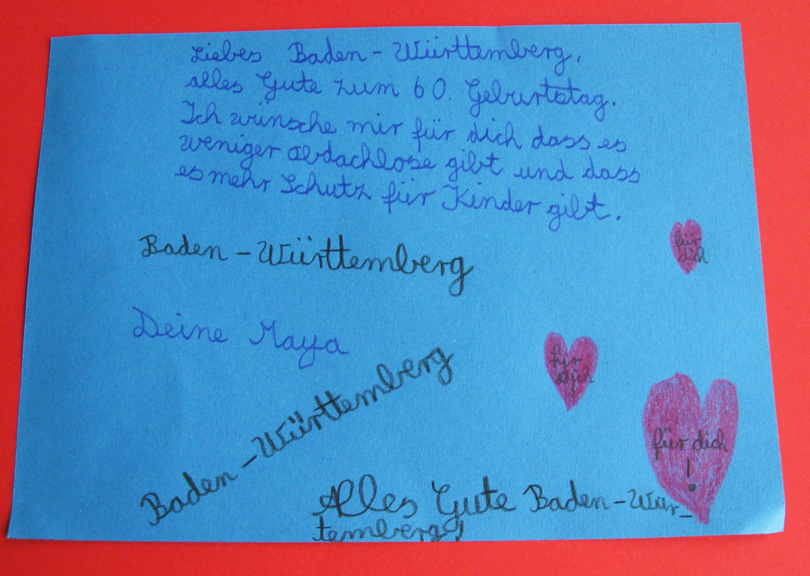 Liebes Baden-Württemberg,
alles Gute zum 60. Geburtstag.
Ich wünsche mir für dich dass es
weniger obdachlose gibt und dass
es mehr Schutz für Kinder gibt.
Baden-Württemberg
für
dich
Deine Maya
für
dich
Baden-Württemberg
für dich
!
Alles Gute Baden-Wür_
temberg!